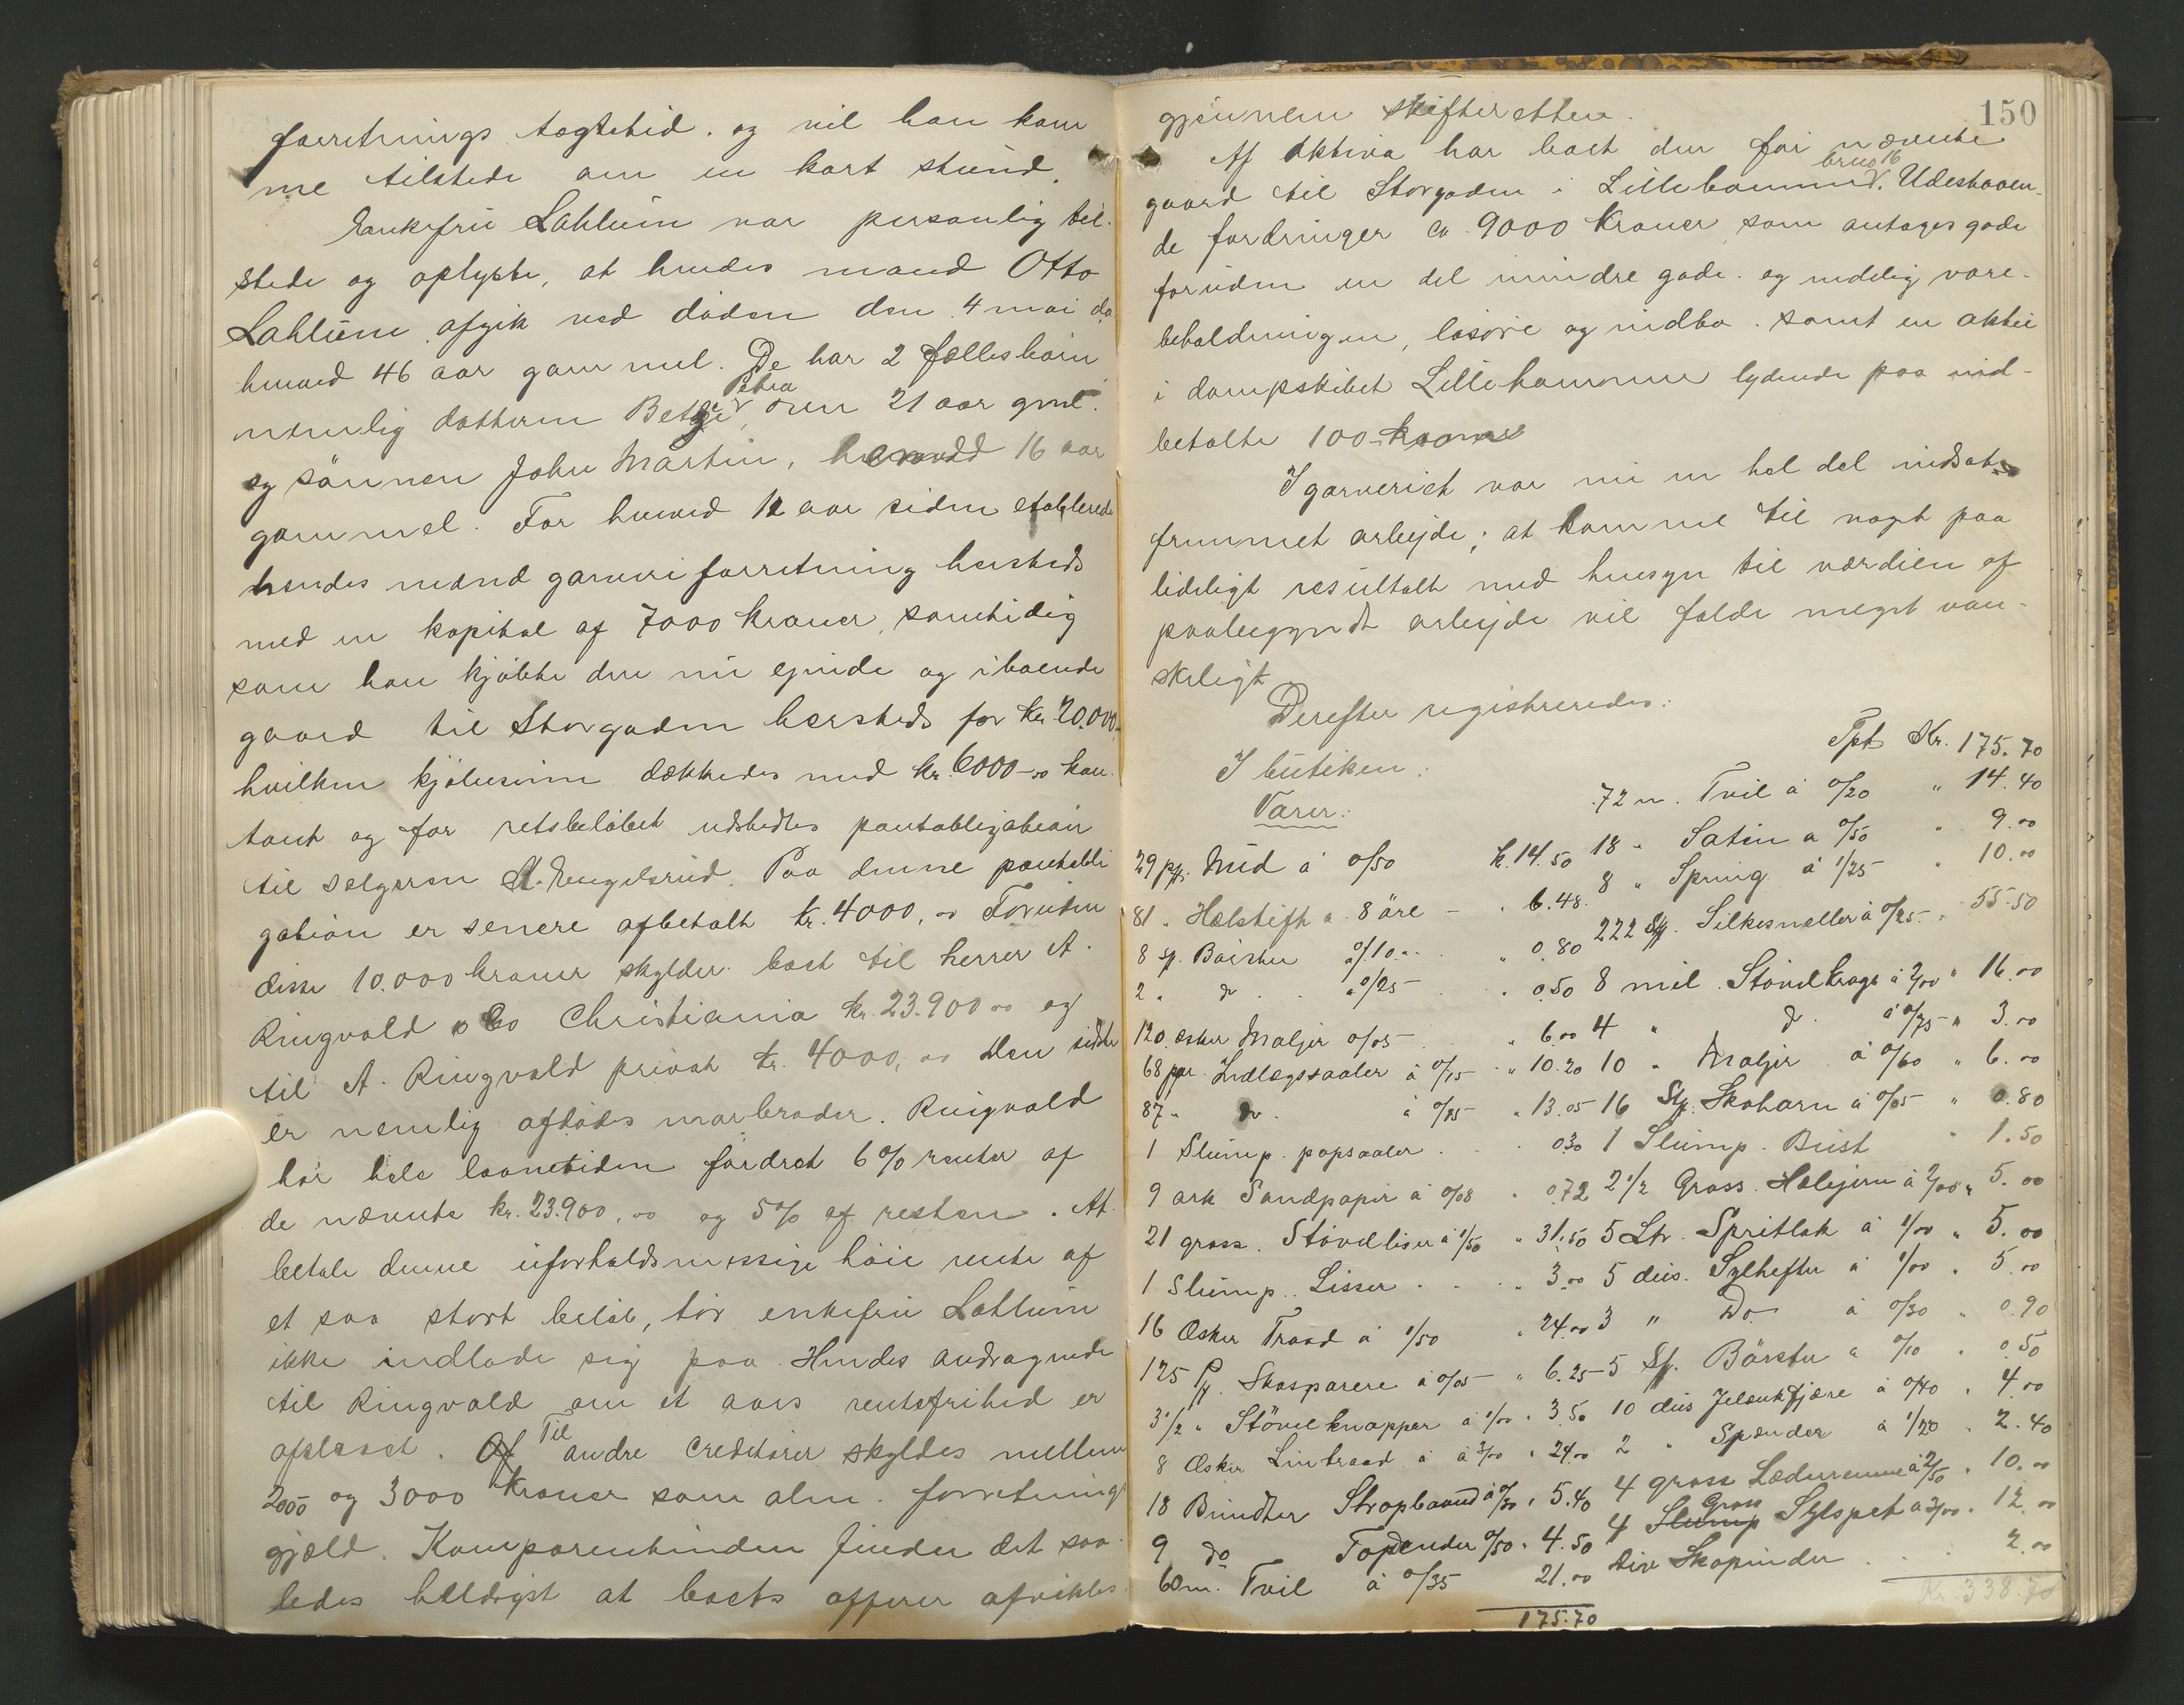 forretnings tagtetid. og vil han kom
me tilstede om en kort stund.
Enkefru Lahlum var personlig til-
stede og oplyste, at hendes mand Otto
Lahlum afgik ved døden den 4 mai da
henved 46 aar gammel. De har 2 fællesbørn
nemlig datteren Betzi Petra, over 21 aar gml.
og sønnen John Martin, henved 16 aar
gammel. For henved 12 aar siden etablerede
hendes mand garveriforretning hersteds
med en kapital af 7000 kroner, samtidig
som han kjøbte den nu eiende og iboende
gaard til Storgaden hersteds for kr. 20.000.-
hvilken kjøbesum dækkedes med kr. 6000-00 kon-
tant og for restbeløbet udstedtes pantobligation
til selgeren A. Engelsrud. Paa denne pantobli
gation er senere afbetalt kr. 4000,00 Foruden
disse 10.000 kroner skylder boet til herrer A.
Ringvold & Co Christiania kr. 23.900 00 og
til A. Ringvold privat kr. 4000,00 Den sidste
er nemlig afdødes morbroder. Ringvold
har hele laanetiden fordret 6% renter af
de nævnte kr. 23.900,00 og 5% af resten. At
betale denne uforholdsmessige høie rente af
et saa stort beløb, tør enkefru Lahlum
ikke indlade sig paa. Hendes andragende
til Ringvold om et aars rentefrihed er
afslaaet. Af Til andre creditorer skyldes mellem
2000 og 3000 kroner som alm. forretnings
gjæld. Komparentinden finder det saa-
ledes heldigst at boets affærer afvikles
150
gjennem skifteretten.
Af Aktiva har boet den før nævnte
gaard til Storgaden i Lillehammer brno 16. Udestaaen-
de fordringer ca 9000 kroner, som antages gode
foruden en del mindre gode. og endelig vare-
beholdningen, løsøre og indbo. samt en aktie
i dampskibet Lillehammer lydende paa ind-
betalte 100 kroner
I garveriet var nu en hel del indsat
fremmet arbejde; at komme til noget paa
lideligt resultatt med hensyn til værdien af
paabegyndt arbejde vil falde meget van-
skeligt
Derefter registreredes:
I butiken:
Varer:
29 pk. Nud à 0/50 k. 14.50
81 " Hælstift a 8 øre - " 6.48
8 sp. Børster à 0/10 " 0.80
2 " do " 0/25 " 0.50
120 æsker Maljer 0/05 " 6.00
68 par Indlægssaaler à 0/15 " 10.20
87 " do à 0/15 " 13.05
1 Slump papsaaler 0.30
9 ark Sandpapir à 0/08 " 0.72
21 gross. Støvelliser à 1/50 " 31.50
1 Slump. Lisser " 3.00
16 Æsker Traad à 1/50 " 24.00
125 Pk. Skosparere à 0/05 " 6.25
3 1/2 " Støvleknapper à 1/00 " 3.50
8 Æsker Lintraad à 3/00 " 24.00
18 Bundter Stropbaand à 0/30 " 5.40
9 do Topender 0/50 " 4.50
60 m. Tvil à 0/35 21.00
175.70
Tpt Kr. 175.70
72 m. Tvil à 0/20 " 14.40
18 " Satin a 0/50 " 9.00
8 " Spring à 1/25 " 10.00
222 Stk. Silkesneller à 0/25 " 55.50
8 mil. Støvelkroge à 2/00 " 16.00
4 " do à 0/75 " 3.00
10 " Maljer à 0/60 " 6.00
16 Stk. Skohorn à 0/05 " 0.80
1 Slump. Bust " 1.50
2 1/2 Gross. Hælejern à 2/00 " 5.00
5 Ltr. Spritlak à 1/00 " 5.00
5 dus. Sylhefter à 1/00 " 5.00
3 " Do à 0/30 " 0.90
5 Stk. Børster à 0/10 " 0.50
10 dus Gelenkfjære à 0/40 " 4.00
2 " Spænder à 1/20 " 2.40
4 gross Læderremme à 2/50 " 10.00
4 Slump Gross Sylspet a 3/00 " 12.00
Div Skopinder 2.00
Kr. 338.70